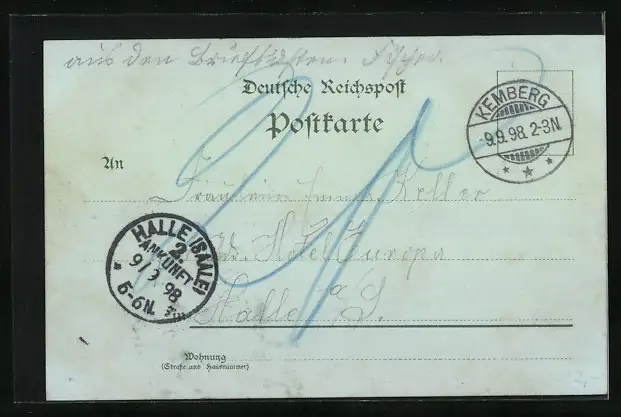 aus den Briefkasten. Fischer.
Deutsche Reichspost
Postkarte
KEMBERG
9.9.98. 2-3N
An
Fräulein Emma Keller
Hotel Europa
Halle a/S.
HALLE (SAALE)
2.
ANKUNFT
9/9 98
6-6N.
in
Wohnung
(Straße und Hausnummer)